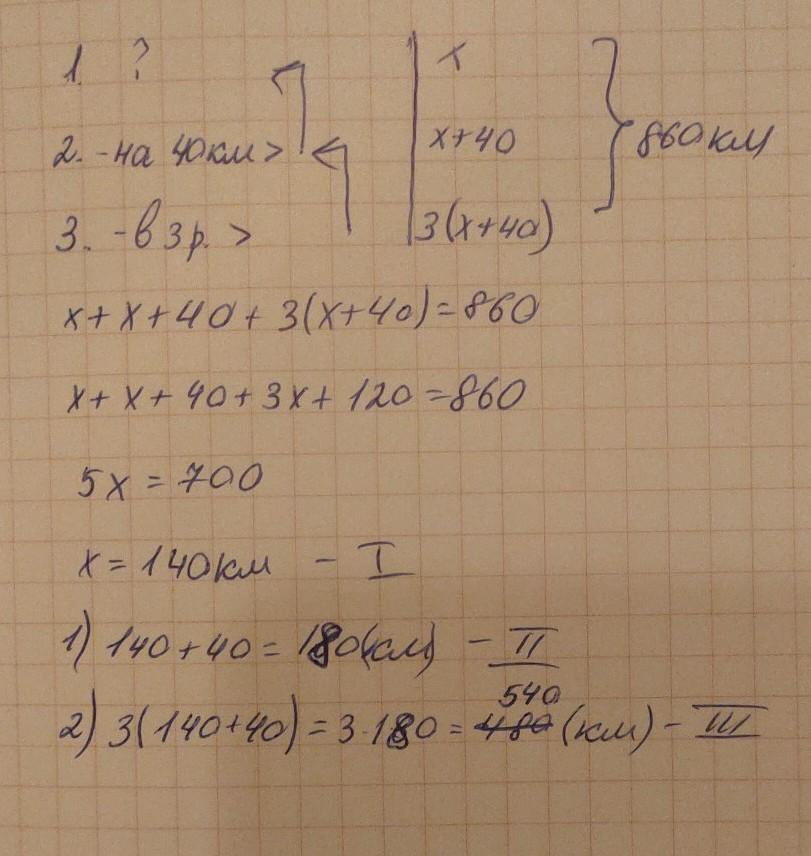 1. ? x
2. -на 40км > x+40 860км
3. -в 3 р. > 3(x+40)
x+x+40+3(x+40)=860
x+x+40+3x+120=860
5x=700
x=140км - I
1) 140+40=180(км) - II
540
2) 3(140+40)=3·180=480(км)-III